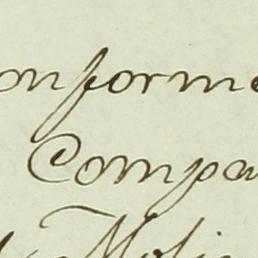 onforme
Compa